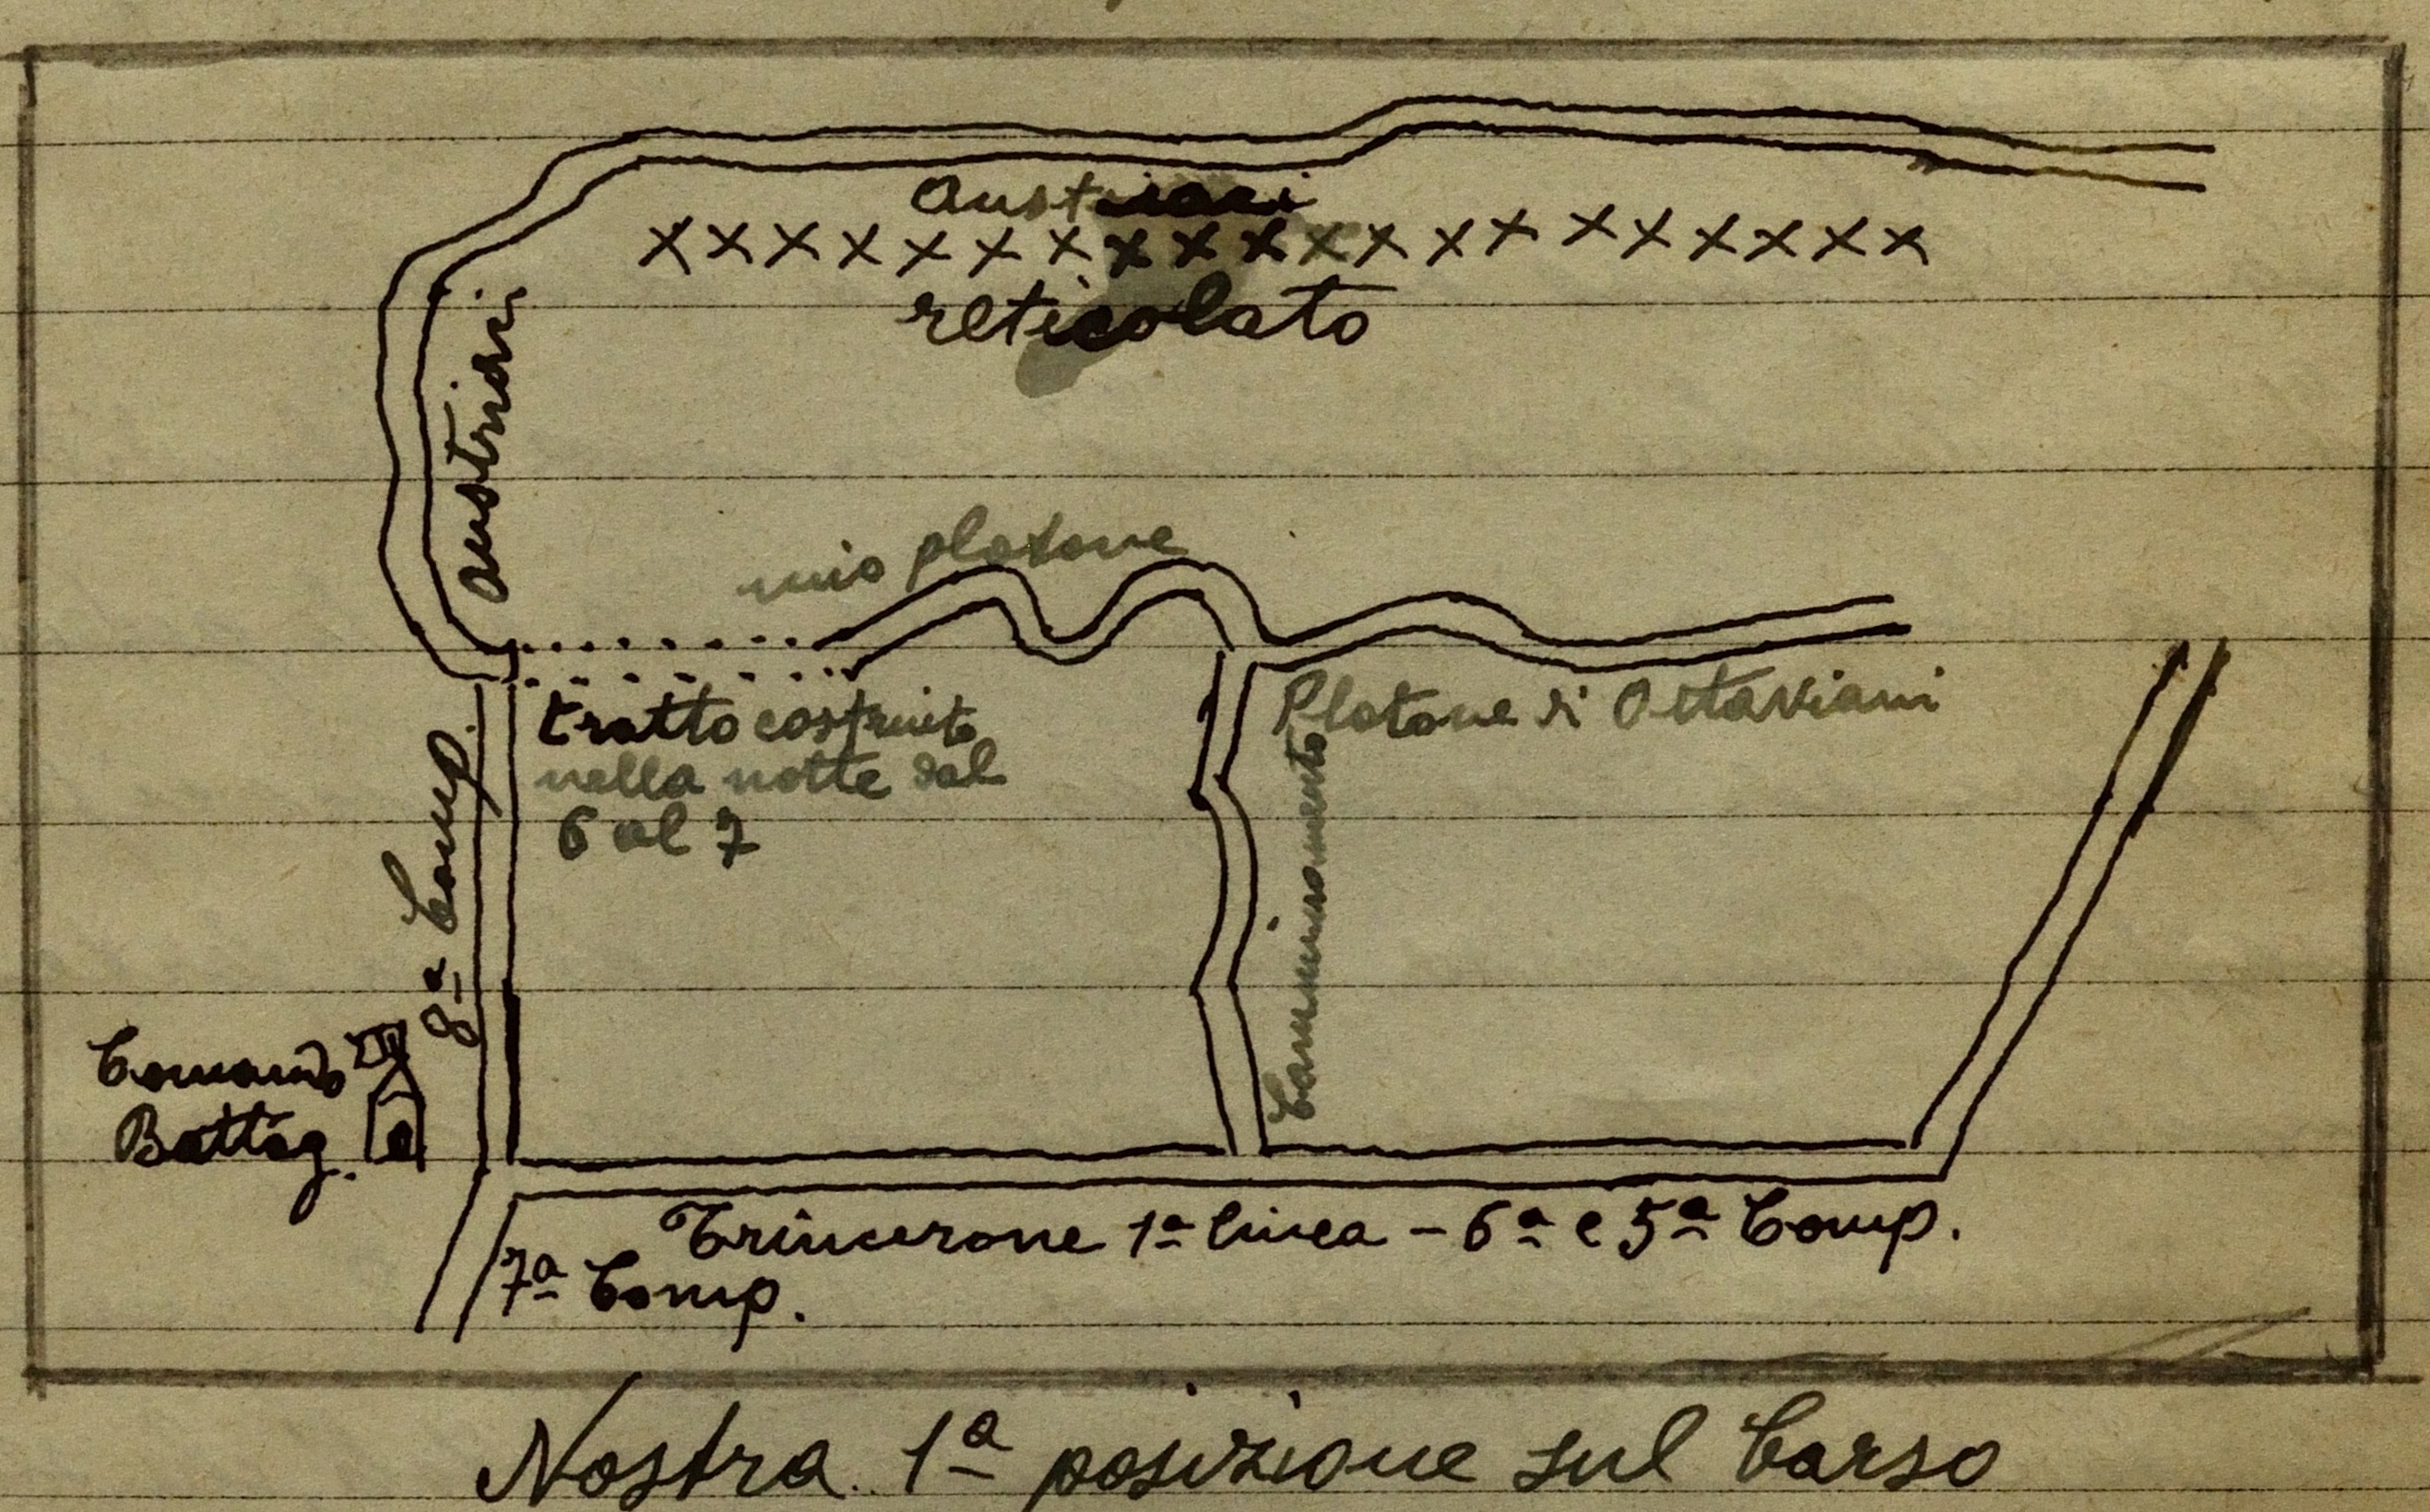 Austriaci
x x x x x x x x x x x x x x x x x x x x
reticolato
austriaci
mio plotone
tratto costruito
nella notte dal
6 al 7
Plotone di Ottaviani
Camminamento
8ª Comp.
Comando
Battag.
Trincerone 1ª linea - 6ª e 5ª Comp.
7ª Comp.
Nostra 1ª posizione sul Carso